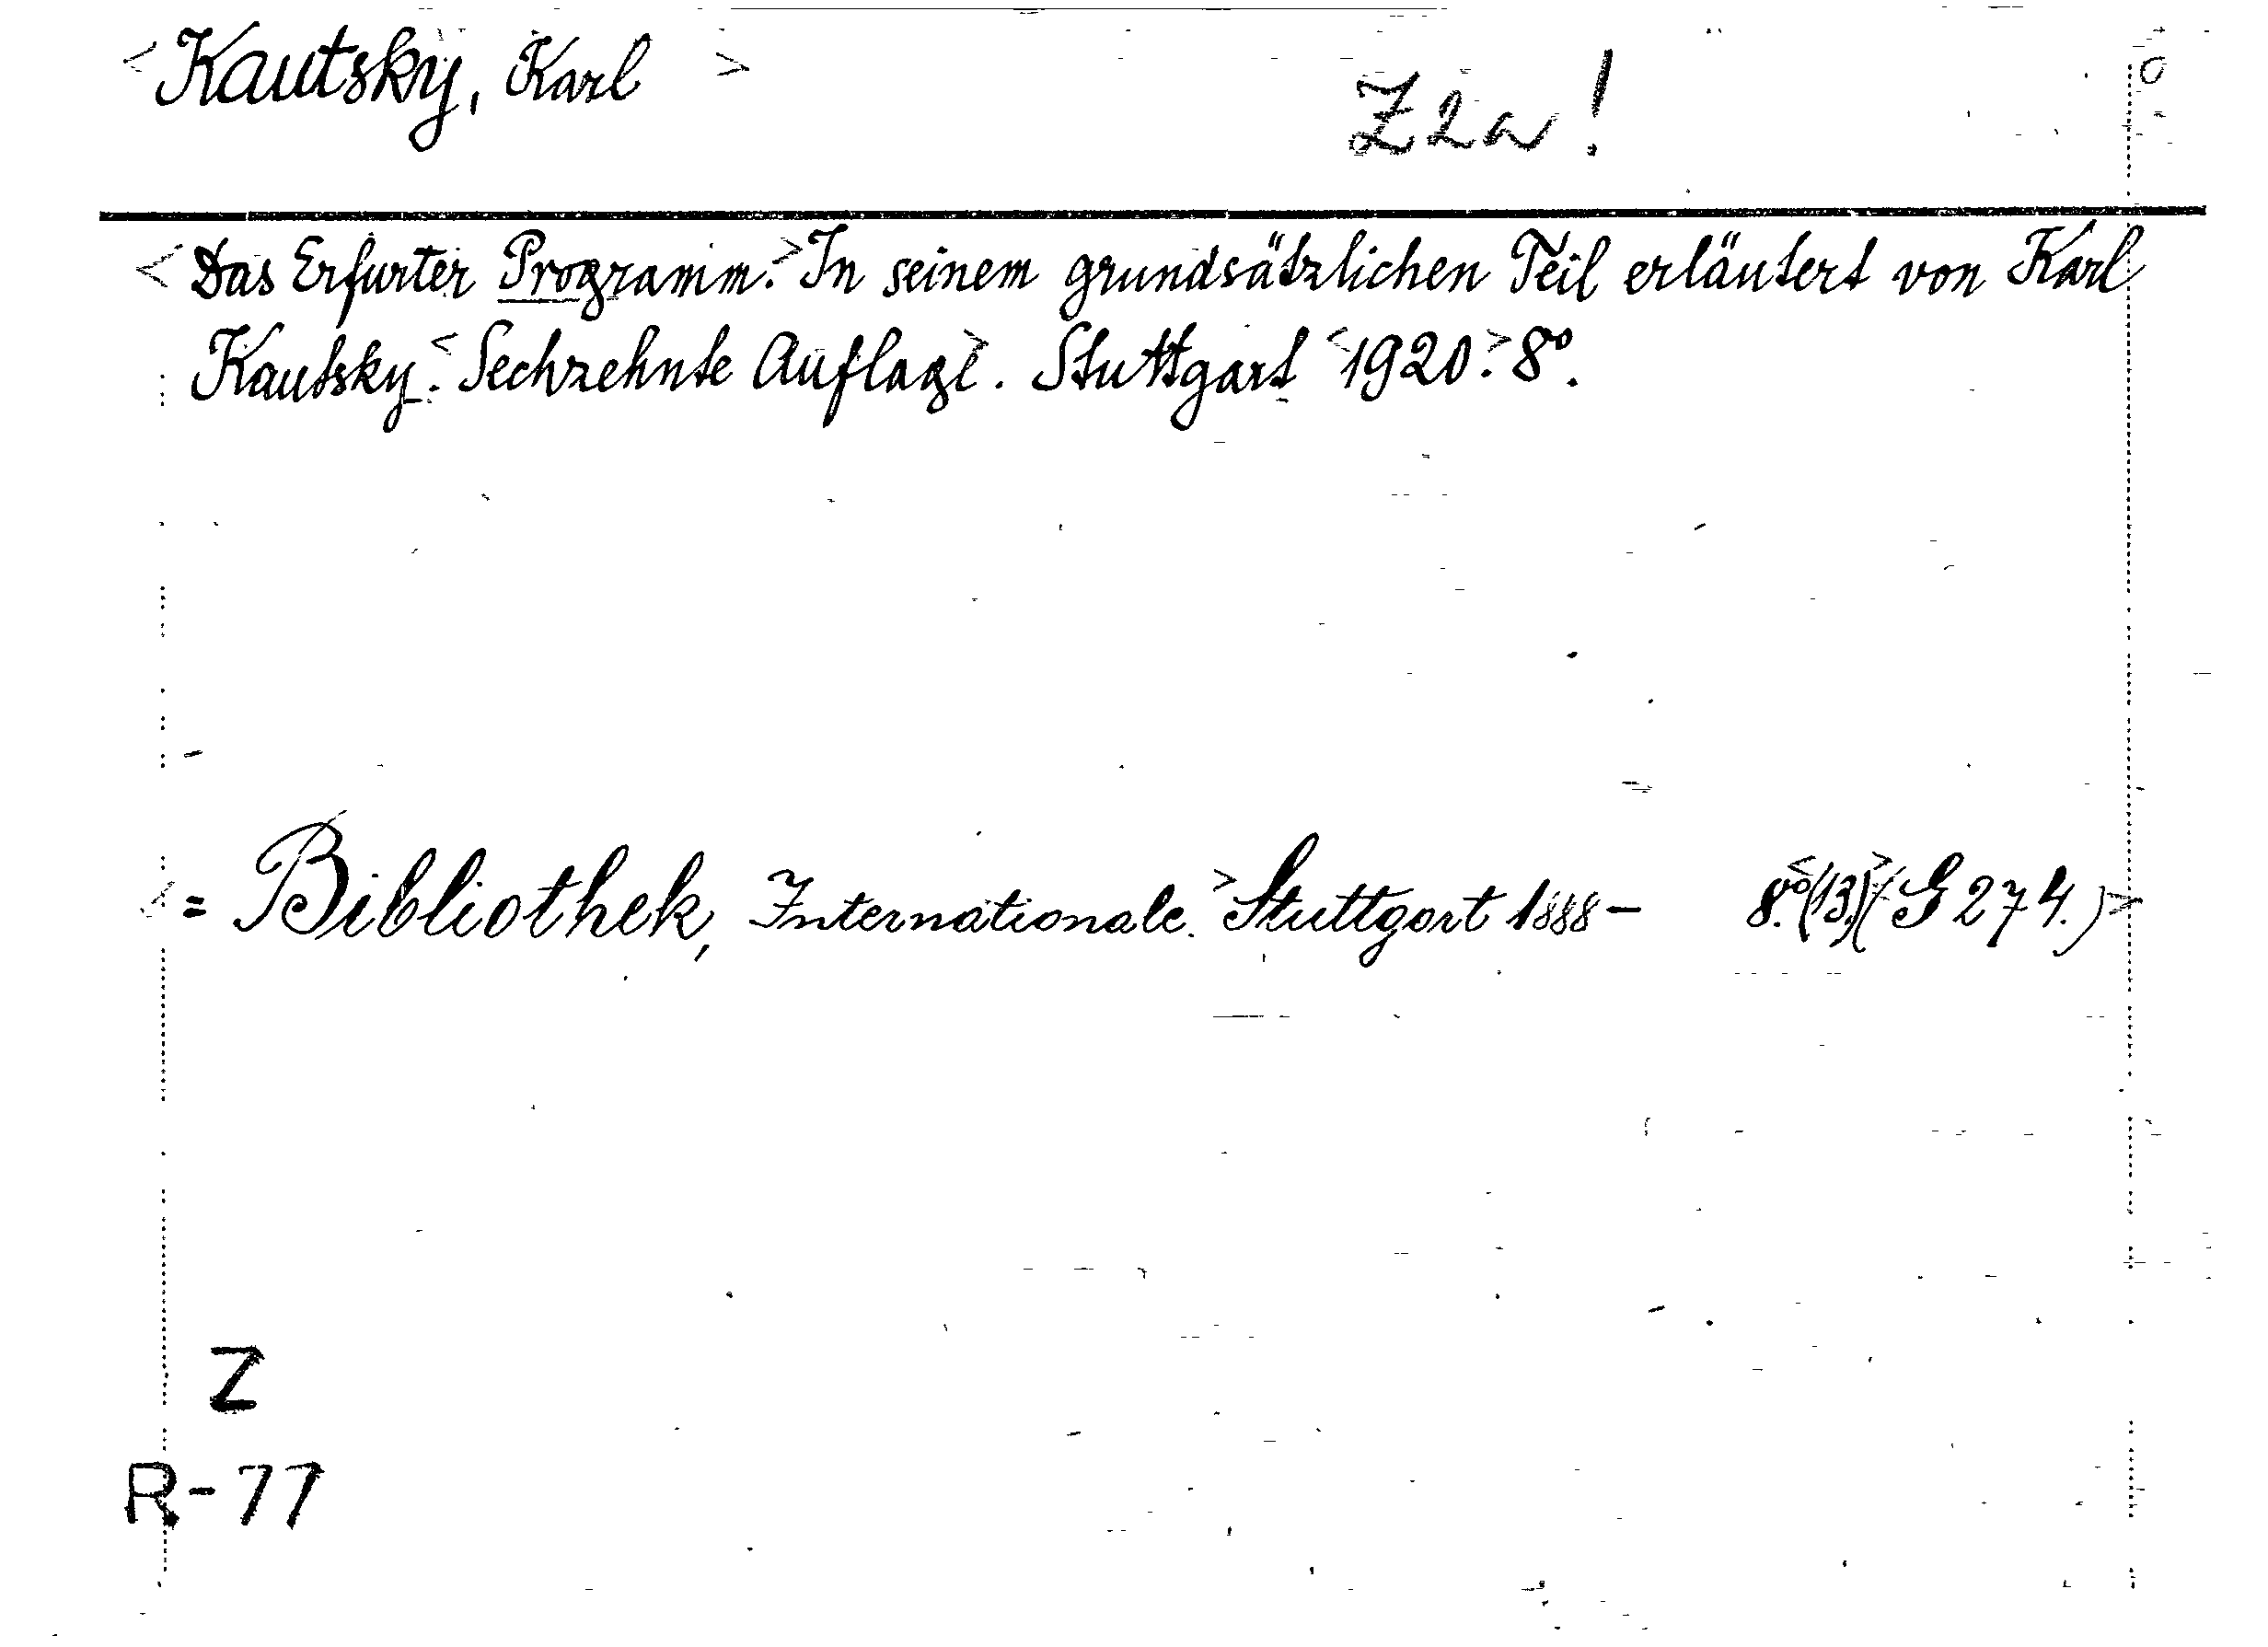 <Kautsky, Karl>
Z2a!
<Das Erfurter Programm.> In seinem grundsätzlichen Teil erläutert von Karl
Kautsky. <Sechzehnte Auflage>. Stuttgart <1920.> 8°.
<= Bibliothek, Internationale.> Stuttgart 1888- 8°. <(13.)> <(G 274.)>
Z
R-77